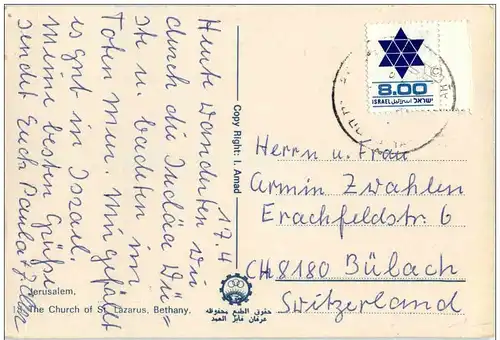 17.4
Heute wanderten wir
durch die Judäa Wü=
ste u. badeten im
Toten Meer. Mir gefällt
es gut in Israel.
Meine besten Grüße
sendet Euch Paula
Jerusalem,
The Church of St. Lazarus, Bethany.
Copy Right: I. Amad
حقوق الطبع محفوظه
عرفان فايز العمد
8.00
ISRAEL اسرائيل ישראל
Herrn u. Frau
Armin Zwahlen
Erachfeldstr. 6
CH 8180 Bülach
Switzerland